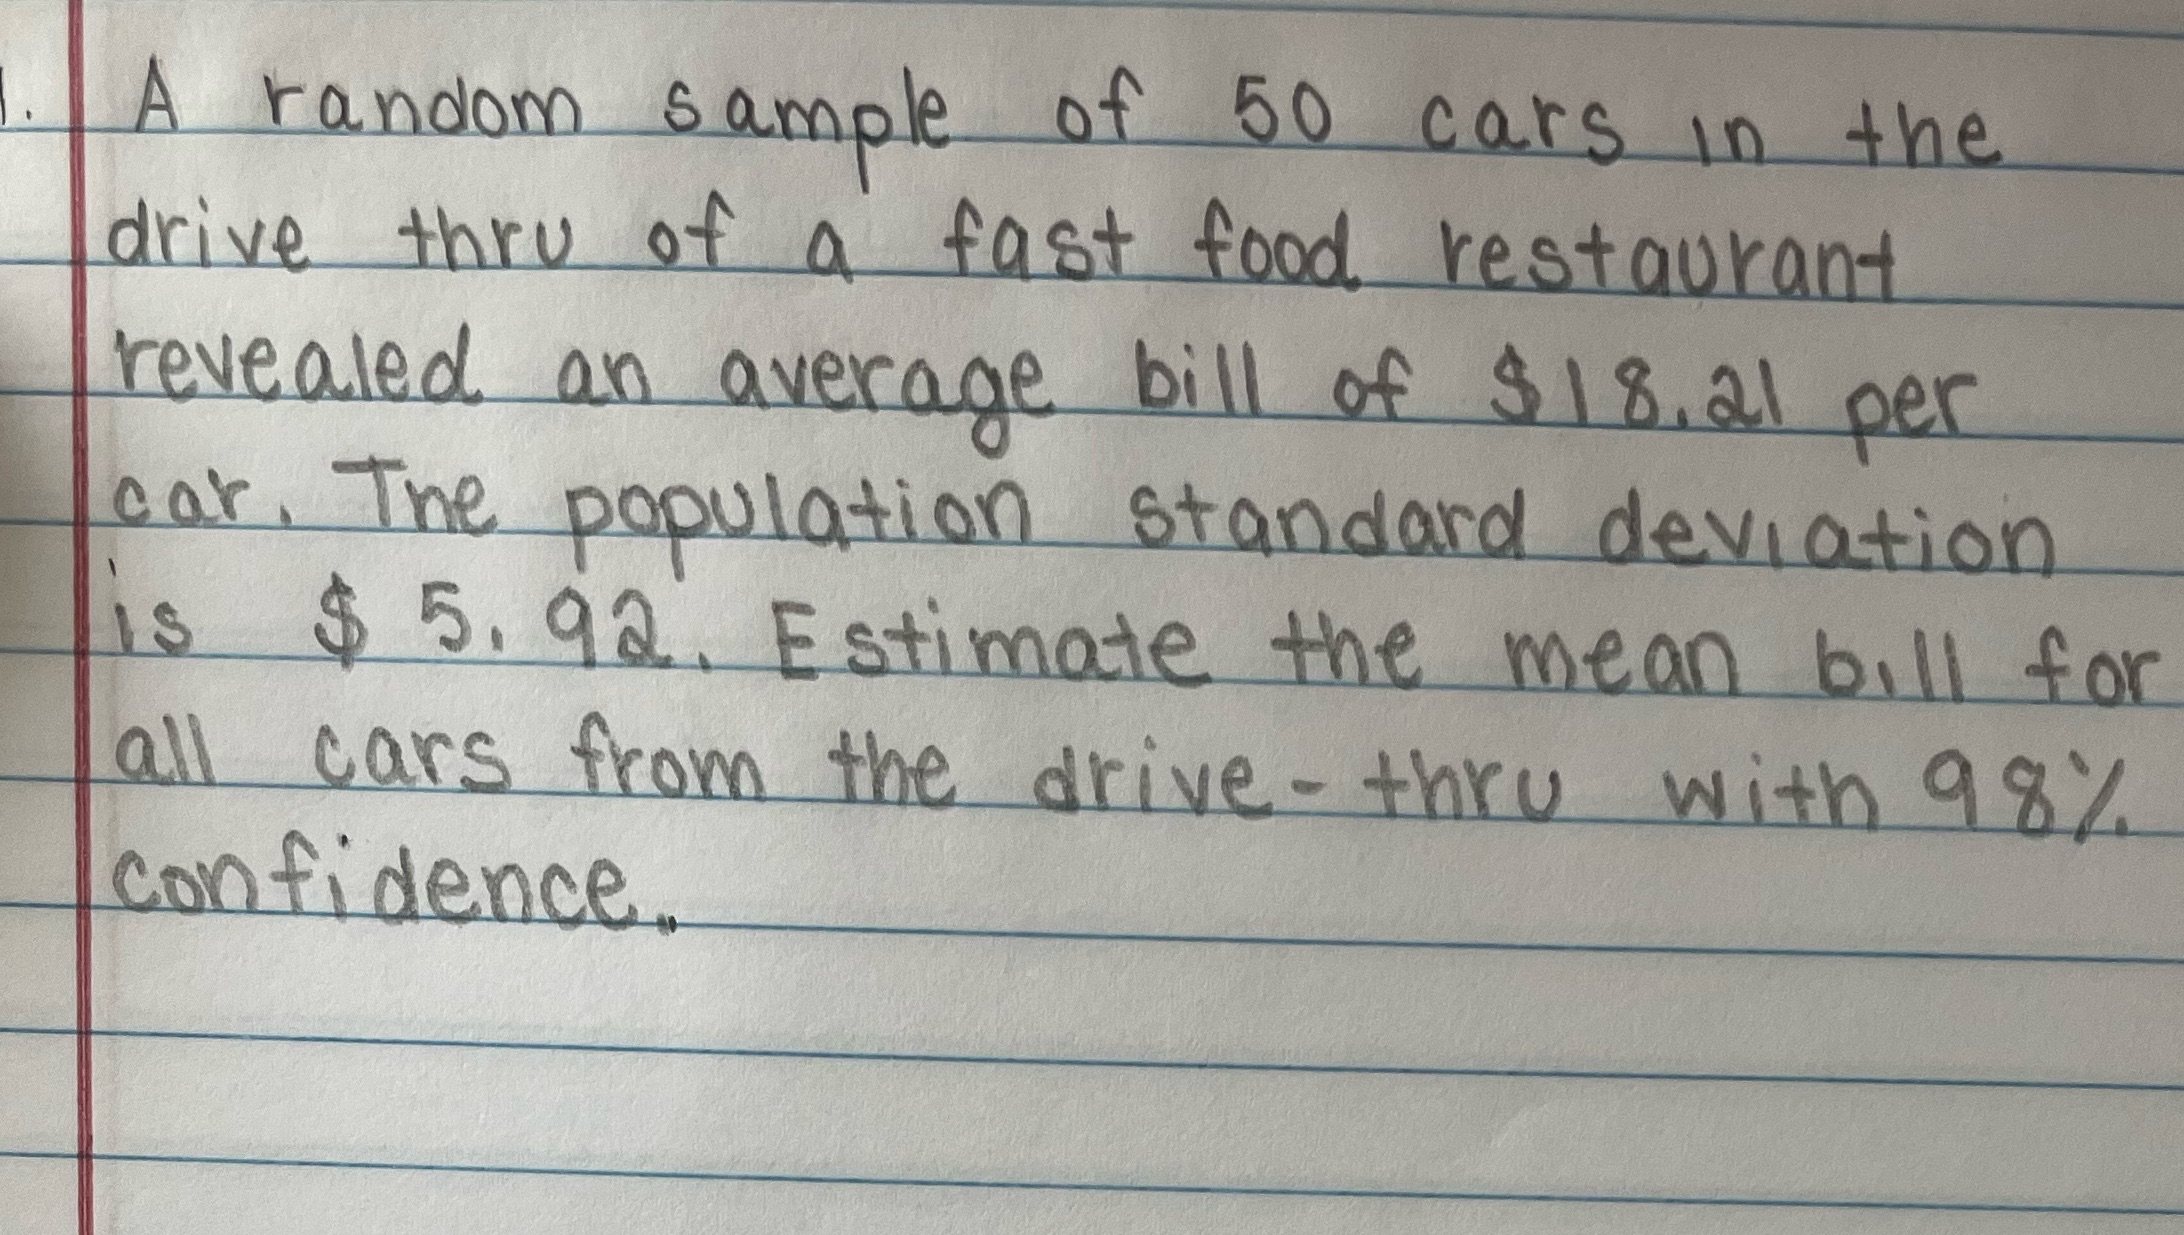 1. A random sample of 50 cars in the
drive thru of a fast food restaurant
revealed an average bill of $18.21 per
car. The population standard deviation
is $5.92. Estimate the mean bill for
all cars from the drive-thru with 98%
confidence.